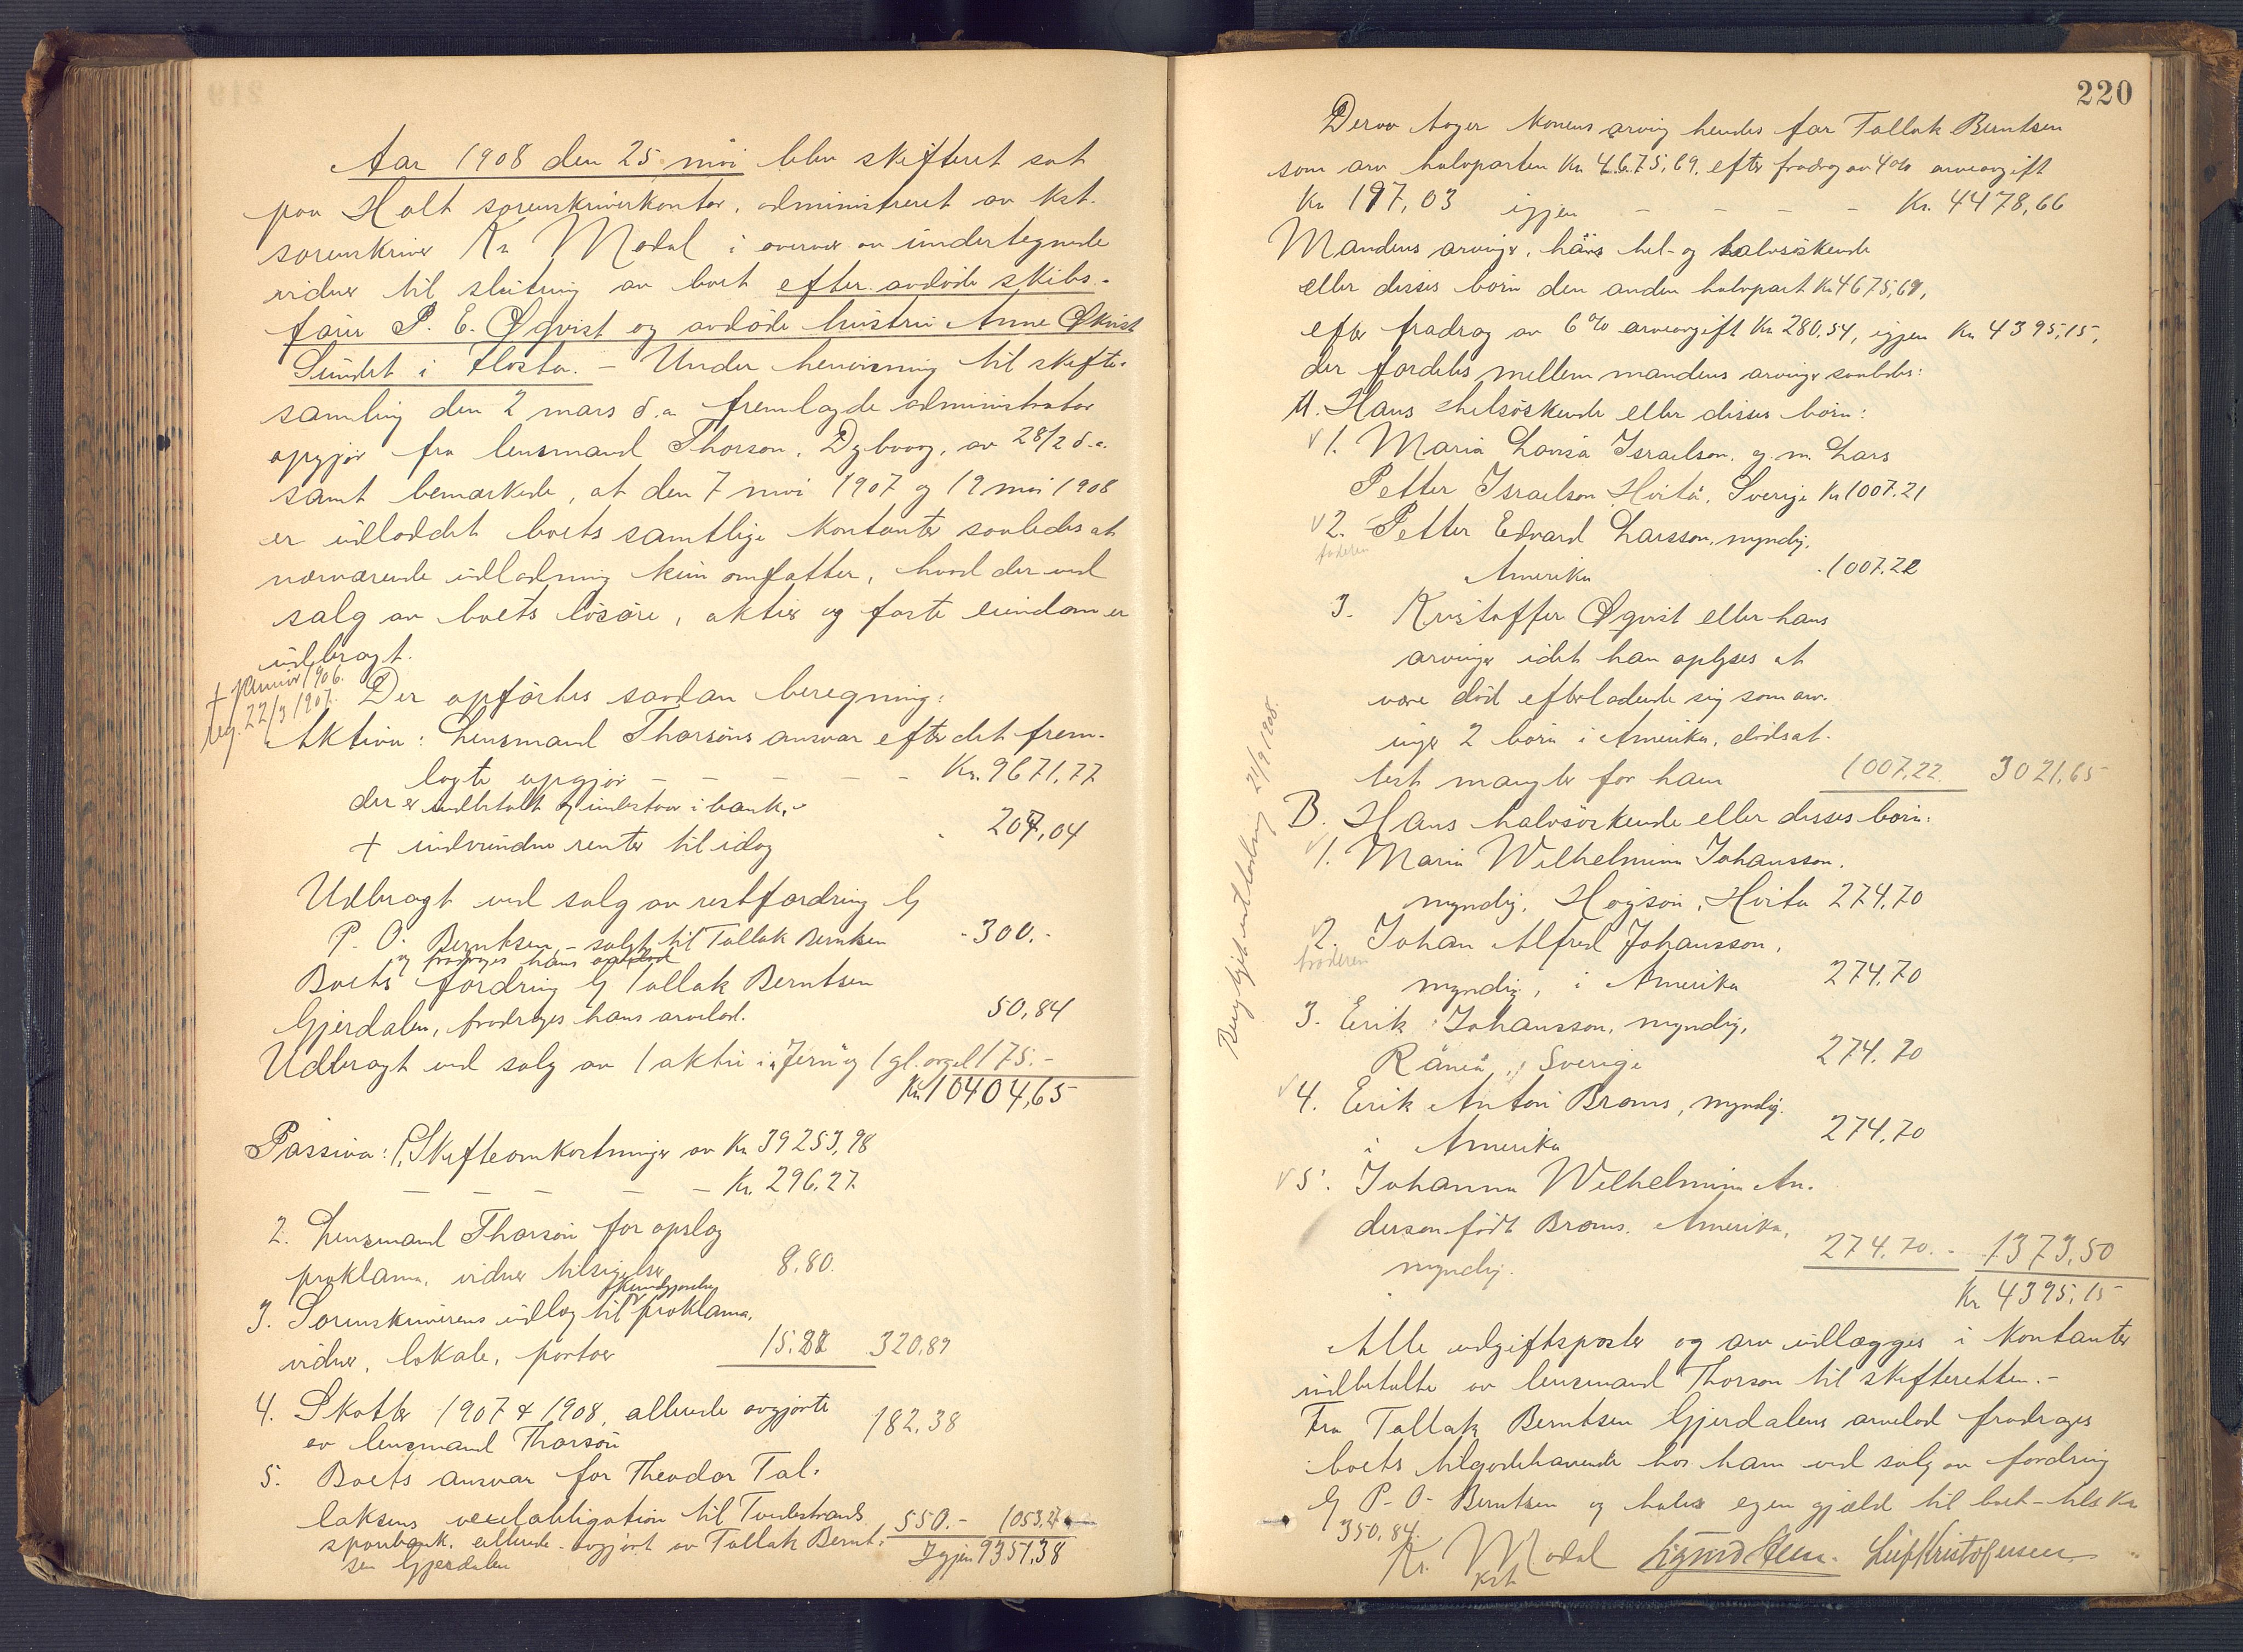 Aar 1908 den 25 mai blev skifteret sat
paa Holt sorenskriverkontor, administreret av kst.
sorenskriver Kr Modal i overvær av undertegnede
vidner til slutning av boet efter avdöde skibs-
förer P. E. Øqvist og avdöde hustru Anne Økvist
Sundet i Flosta. – Under henvisning til skifte-
samling den 2 mars d.a. fremlagde administrator
opgjör fra lensmand Thorson, Dybvaag, av 28/2 d.a.
samt bemerkede, at den 7 mai 1907 og 19 mai 1908
er utloddet boets samtlige kontanter saaledes at
nærværende utlodning kun omfatter, hvad der ved
salg av boets lösöre, aktier og faste eiendom er
utbragt.
+ januar 1906.
reg. 22/3 1907.
Der opförtes saadan beregning:
Aktiva: Lensmand Thorsöns ansvar efter det frem-
lagte opgjör – – – – – Kr. 9671,77
der er indbetalt og indestaar i bank,
+ indvundne renter til idag - 207,04
Utbragt ved salg av restfordring hos
P. O. Berntsen, – solgt til Tallak Berntsen - 300.-
og fradrages hans arvelod
Boets fordring hos Tallak Berntsen
Gjerdalen, fradrages hans arvelod. 50,84
Udbragt ved salg av 1 aktie i "Jern" og 1 gl. orgel 175.-
Kr. 10404,65
Passiva: 1. Skifteomkostninger av Kr 39253,98
– – – – – Kr. 296.27
2. Lensmand Thorsön for opslag
proklama, vidner tilsigelser 8.80.
kundgjörelse
3. Sorenskriverens utlæg til proklama,
vidner, lokale, portoer 15.82 320.89
4. Skatter 1907 & 1908, allerede avgjorte
av lensmand Thorsön 182.38
5. Boets ansvar for Theodor Tal-
laksens vexelobligation til Tvedestrands
sparebank, allerede avgjort av Tallak Bernt- 550.- 1053,27
sen Gjerdalen Igjen 9351,38
220
Derav tager konens arving hendes far Tallak Berntsen
som arv halvparten Kr 4675,69, efter fradrag av 4% arveavgift
Kr 197,03 igjen – – – – Kr. 4478,66
Mandens arvinger, hans hel- og halvsöskende
eller disses börn den anden halvpart Kr 4675,69,
efter fradrag av 6% arveavgift Kr 280,54, igjen Kr 4395,15,
der fordeles mellem mandens arvinger saaledes:
A. Hans helsöskende eller disses börn:
1. Maria Lovisa Israelson, g. m. Lars
Petter Israelson Hvitå, Sverige Kr 1007.21
2. Petter Edvard Larsson, myndig,
Amerika - 1007.22
3. Kristoffer Øqvist eller hans
arvinger idet han oplyses at
være död efterladende sig som arv-
inger 2 börn i Amerika, dödsat-
test mangler for ham 1007.22. 3021,65
B. Hans halvsöskende eller disses börn:
1. Maria Wilhelmina Johansson,
myndig, Högsön, Hvita 274,70
2. Johan Alfred Johansson,
myndig, i Amerika 274,70
3. Erik Johansson, myndig,
Råneå, Sverige 274.70
4. Erik Anton Broms, myndig
i Amerika 274,70
5. Johanna Wilhelmina An-
derson född Broms, Amerika,
myndig. 274.70. – 1373,50
Kr 4395,15
Alle udgiftsposter og arv utlægges i kontanter
indbetalte av lensmand Thorson til skifteretten. –
Fra Tallak Berntsen Gjerdalens arvelod fradrages
boets tilgodehavende hos ham ved salg av fordring
hos P. O. Berntsen og hans egen gjæld til boet – tils Kr
350,84.
Kr. Modal Sigurd Leif Kristofersen
kst